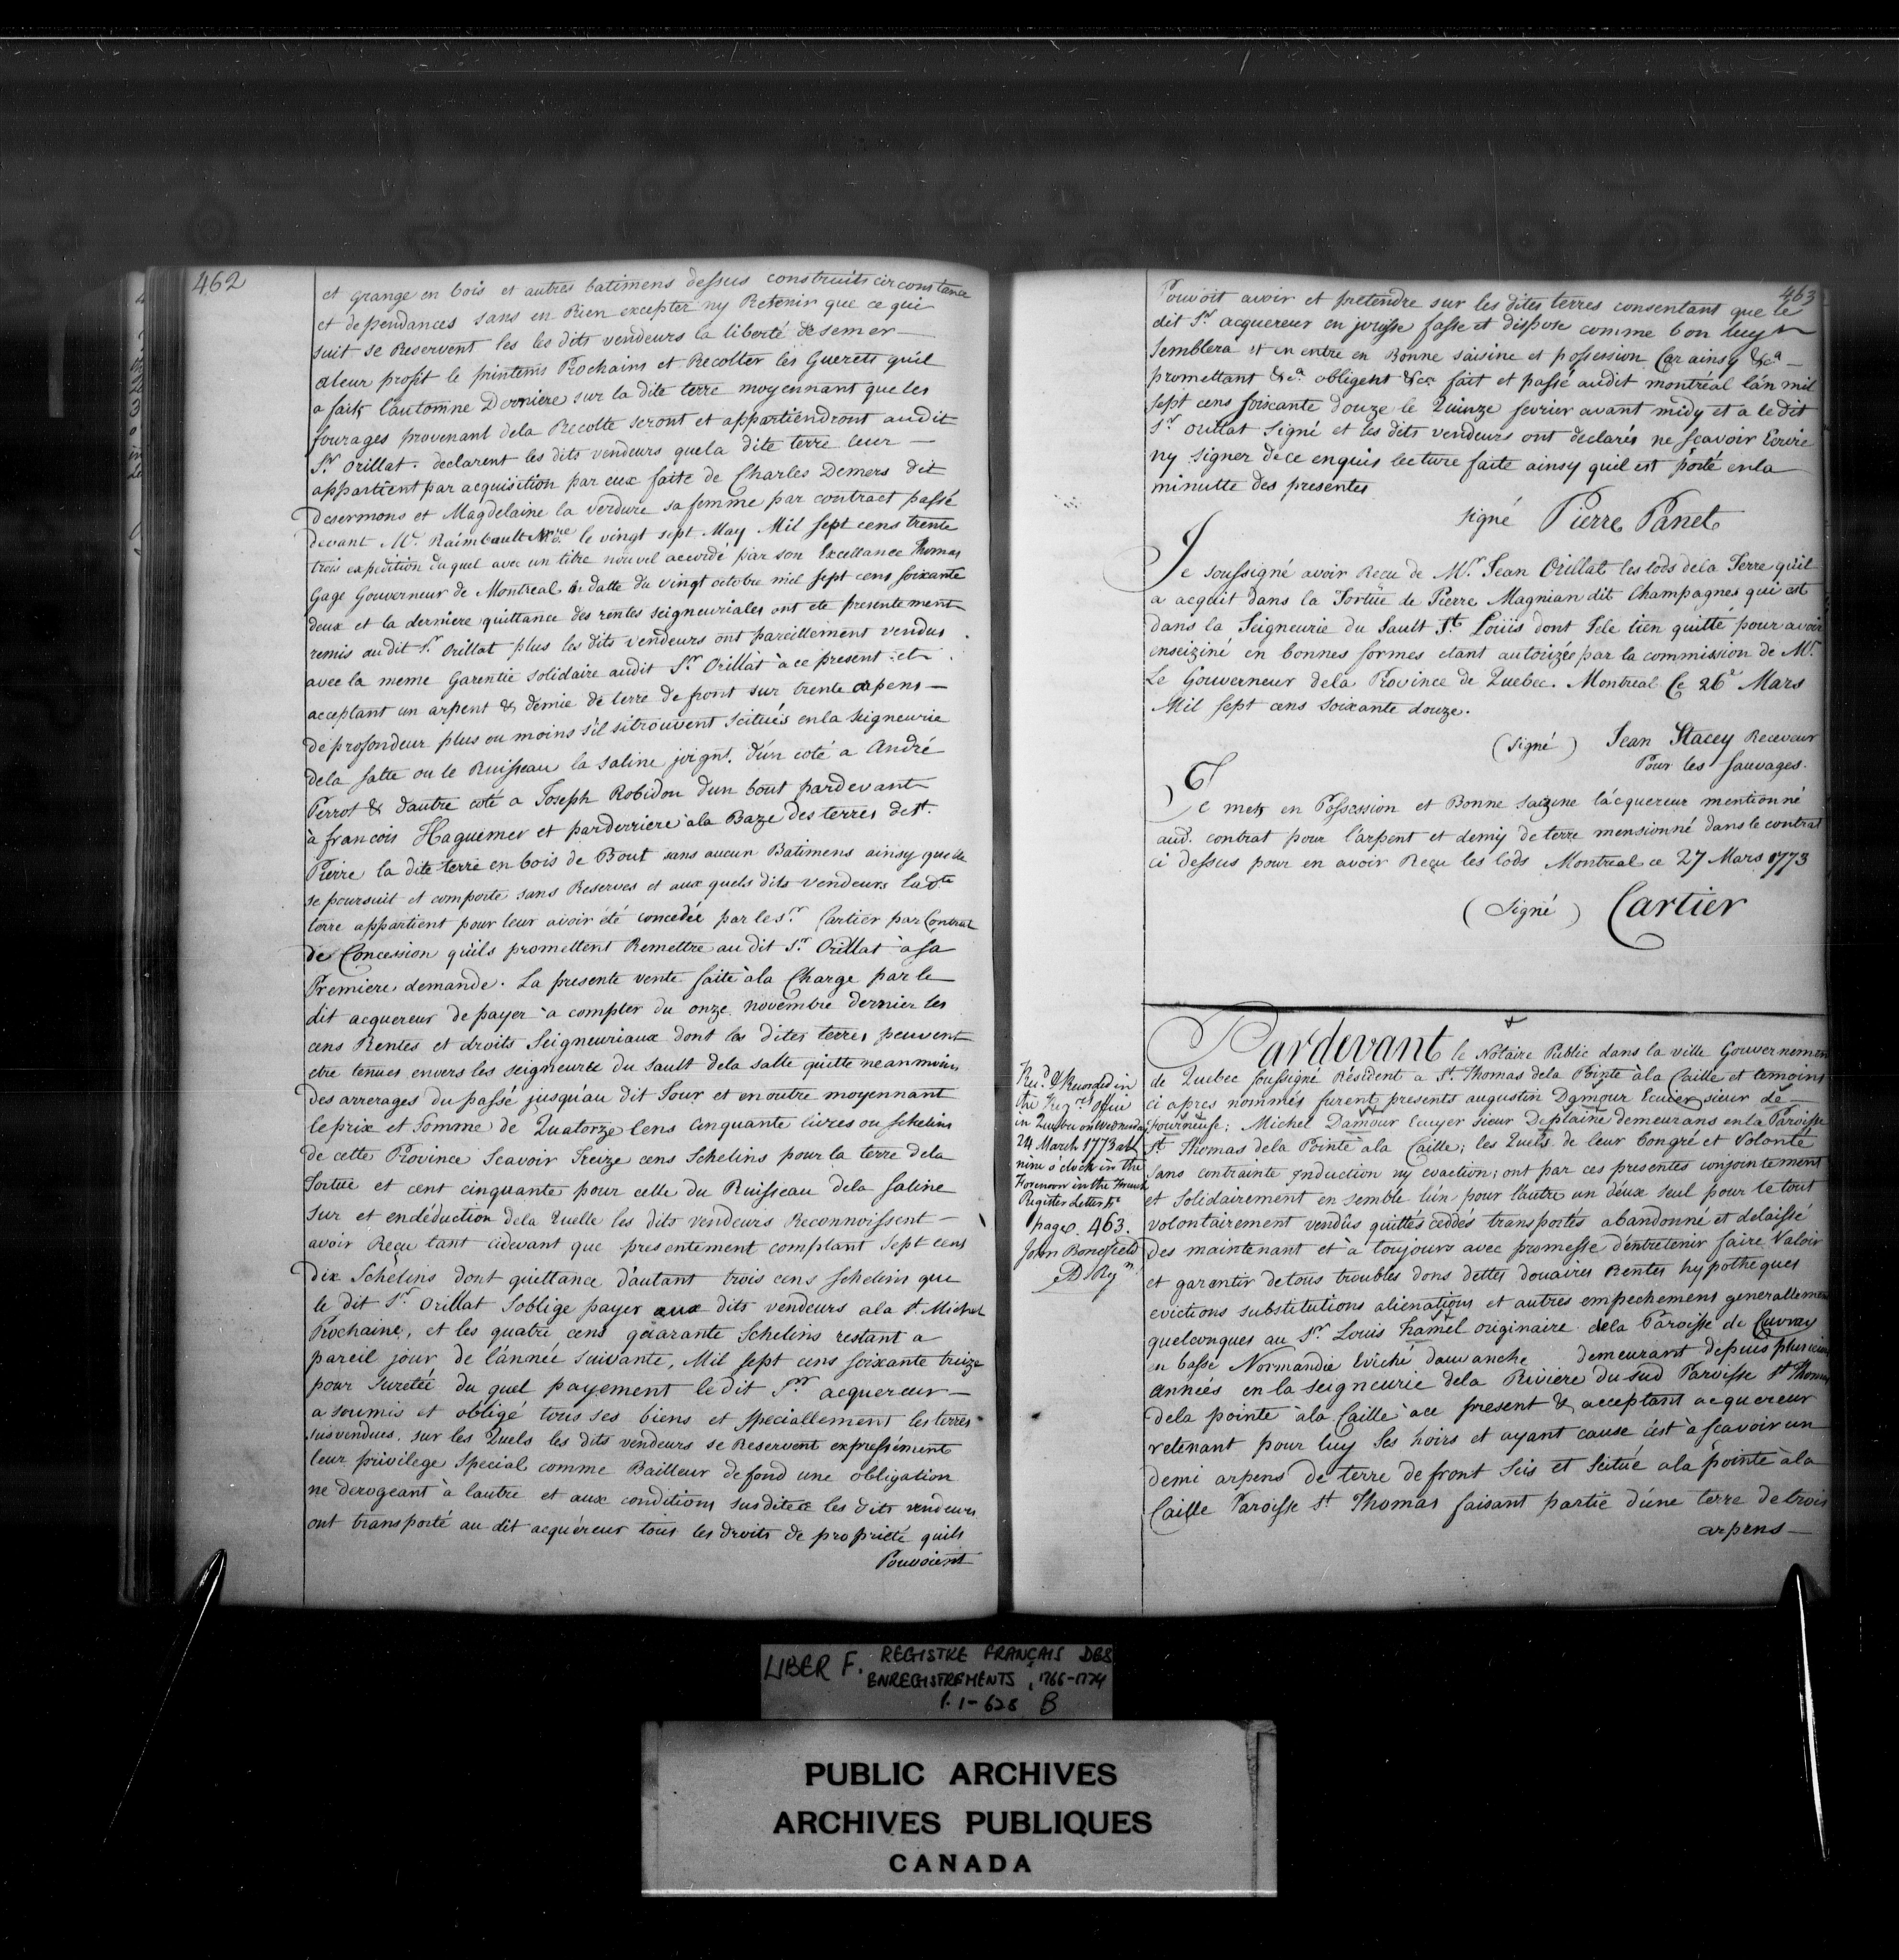 462
et grange en bois et autres batimens dessus construits circonstance
et dependances sans en Rien excepter ny Retenir que ce qui
suit se Reservent les les dits vendeurs la liberté de semer —
aleur profit le printems Prochains et Recolter les Guerets quil
a faits l'automne Derniere sur la dite terre moyennant que les
fourages provenant dela Recolte seront et appartiendront audit
Sr. Orillat. declarent les dits vendeurs quela dite terre leur —
appartient par acquisition par eux faite de Charles Demers dit
desermons et Magdelaine la verdure sa femme par contract passé
devant Me. Raimbault Nre. le vingt sept May Mil sept cens trente
trois expedition du quel avec un titre nouvel accordé par son Excellance Thomas
Gage Gouverneur de Montreal en datte du vingt octobre mil sept cens soixante
deux et la derniere quittance des rentes seigneuriales ont eté presentement
remis audit Sr. Orillat plus les dits vendeurs ont pareillement vendus
avec la meme Garentie solidaire audit Sr. Orillat à ce present et
acceptant un arpent & demie de terre de front sur trente arpens —
de profondeur plus ou moins s'il s'i trouvent scitués en la seigneurie
dela salle ou le Ruisseau la saline joignt. d'un coté a André
Perrot & dautre coté a Joseph Robidou dun bout pardevant
à francois Haguemer et parderriere à la Baze des terres de St.
Pierre la dite terre en bois de Bout sans aucun Batimens ainsy quelle
se poursuit et comporte sans Reserves et aux quels dits vendeurs la dte
terre appartient pour leur avoir été concedée par le Sr. Cartier par Contrat
de Concession quils promettent Remettre au dit Sr. Orillat à sa
Premiere demande. La presente vente faite à la Charge par le
dit acquereur de payer à compter du onze novembre dernier les
cens Rentes et droits Seigneuriaux dont les dites terres peuvent
etre tenues envers les seigneurie du Sault dela salle quitte neanmoins
des arrerages du passé jusqu'au dit Jour et en outre moyennant
le prix et Somme de Quatorze Cens Cinquante livres ou schelins
de cette Province Scavoir Treize cens Schelins pour la terre dela
Tortue et cent cinquante pour celle du Ruisseau dela saline
sur et en déduction dela Quelle les dits vendeurs Reconnoissent —
avoir Reçu tant cidevant que presentement comptant Sept cens
dix Schelins dont quittance d'autant trois cens schelins que
le dit Sr. Orillat s'oblige payer aux dits vendeurs ala St. Michel
Prochaine, et les quatre cens quarante Schelins restant a
pareil jour de l'année suivante, Mil sept cens soixante treize
pour Suretée du quel payement le dit Sr. acquereur —
a soumis et obligé tous ses biens et speciallement les terres
susvendues. sur les Quels les dits vendeurs se Reservent expressément
leur privilege Special comme Bailleur de fond une obligation
ne derogeant à lautre et aux conditions susdites les dits vendeurs
ont transporté au dit acquéreur tous les droits de proprieté quils
Pouvoient
463
Pouvoit avoir et pretendre sur les dites terres consentant que le
dit Sr. acquereur en jouisse fasse et dispose comme bon luy
Semblera et en entre en Bonne saisine et possession Car ainsy &ca —
promettant &ca. obligent &ca fait et passé audit montréal l'an mil
sept cens soixante douze le Quinze fevrier avant midy et a le dit
Sr. Orillat Signé et les dits vendeurs ont declarés ne scavoir Ecrire
ny signer de ce enquis lecture faite ainsy quil est porté en la
minutte des presentes
signé Pierre Panet
Je soussigné avoir Reçu de Mr. Jean Orillat les lods dela Terre quil
a acquit dans la Tortüe de Pierre Magnian dit Champagnes qui est
dans la Seigneurie du Sault St. Loüis dont Jele tien quitte pour avoir
enseiziné en bonnes formes etant autorizée par la commission de Mr.
Le Gouverneur dela Province de Quebec. Montreal Ce 26e Mars
Mil sept cens Soixante douze.
(signé) Jean Stacey Receveur
Pour les sauvages.
Je mets en Possession et Bonne Saizine l'acquereur mentionné
aud. contrat pour l'arpent et demiy de terre mensionné dans le contrat
ci dessus pour en avoir Reçu les lods Montreal ce 27 Mars 1773
(Signé) Cartier
Recd. & Recorded in
the Regrs. Office
in Quebec on Wednesday
24 March 1773 at
nine o'clock in the
Forenoon in the French
Register Letter
page. 463.
John Bonefield
Pardevant le Notaire Public dans la ville Gouvernement
de Quebec soussigné Résident a St. Thomas dela Pointe àla Caille et temoins
ci apres nommés furent presents augustin Damour Ecuier sieur de —
fourneuse; Michel Damour Ecuyer sieur Deplaine demeurans en la Paroisse
St. Thomas dela Pointe àla Caille; les Quels de leur bongré et Volonté
sans contrainte Induction ny evaction; ont par ces presentes conjointement
et Solidairement en semble l'un pour l'autre un d'eux seul pour le tout
volontairement vendûs quittés ceddés transportés abandonné et delaissé
des maintenant et à toujours avec promesse d'entretenir faire Valoir
et garentir de tous troubles dons dettes douaires Rentes hypotheques
evictions substitutions alienations et autres empechemens generallement
quelconques au Sr. Louis hamel originaire dela Paroisse de
en basse Normandie Eviché demeurant depuis plusieurs
années en la seigneurie dela Riviere du sud Paroisse St Thomas
dela pointe àla Caille àce present & acceptant acquereur
retenant pour luy Ses hoirs et ayant cause c'est à scavoir un
demi arpens de terre de front Scis et Scitué ala pointe àla
Caille Paroisse St Thomas faisant partie d'une terre de trois
arpens —
LIBER F. REGISTRE FRANÇAIS DES
ENREGISTREMENTS, 1766-1774
P. 1-628 B
PUBLIC ARCHIVES
ARCHIVES PUBLIQUES
CANADA